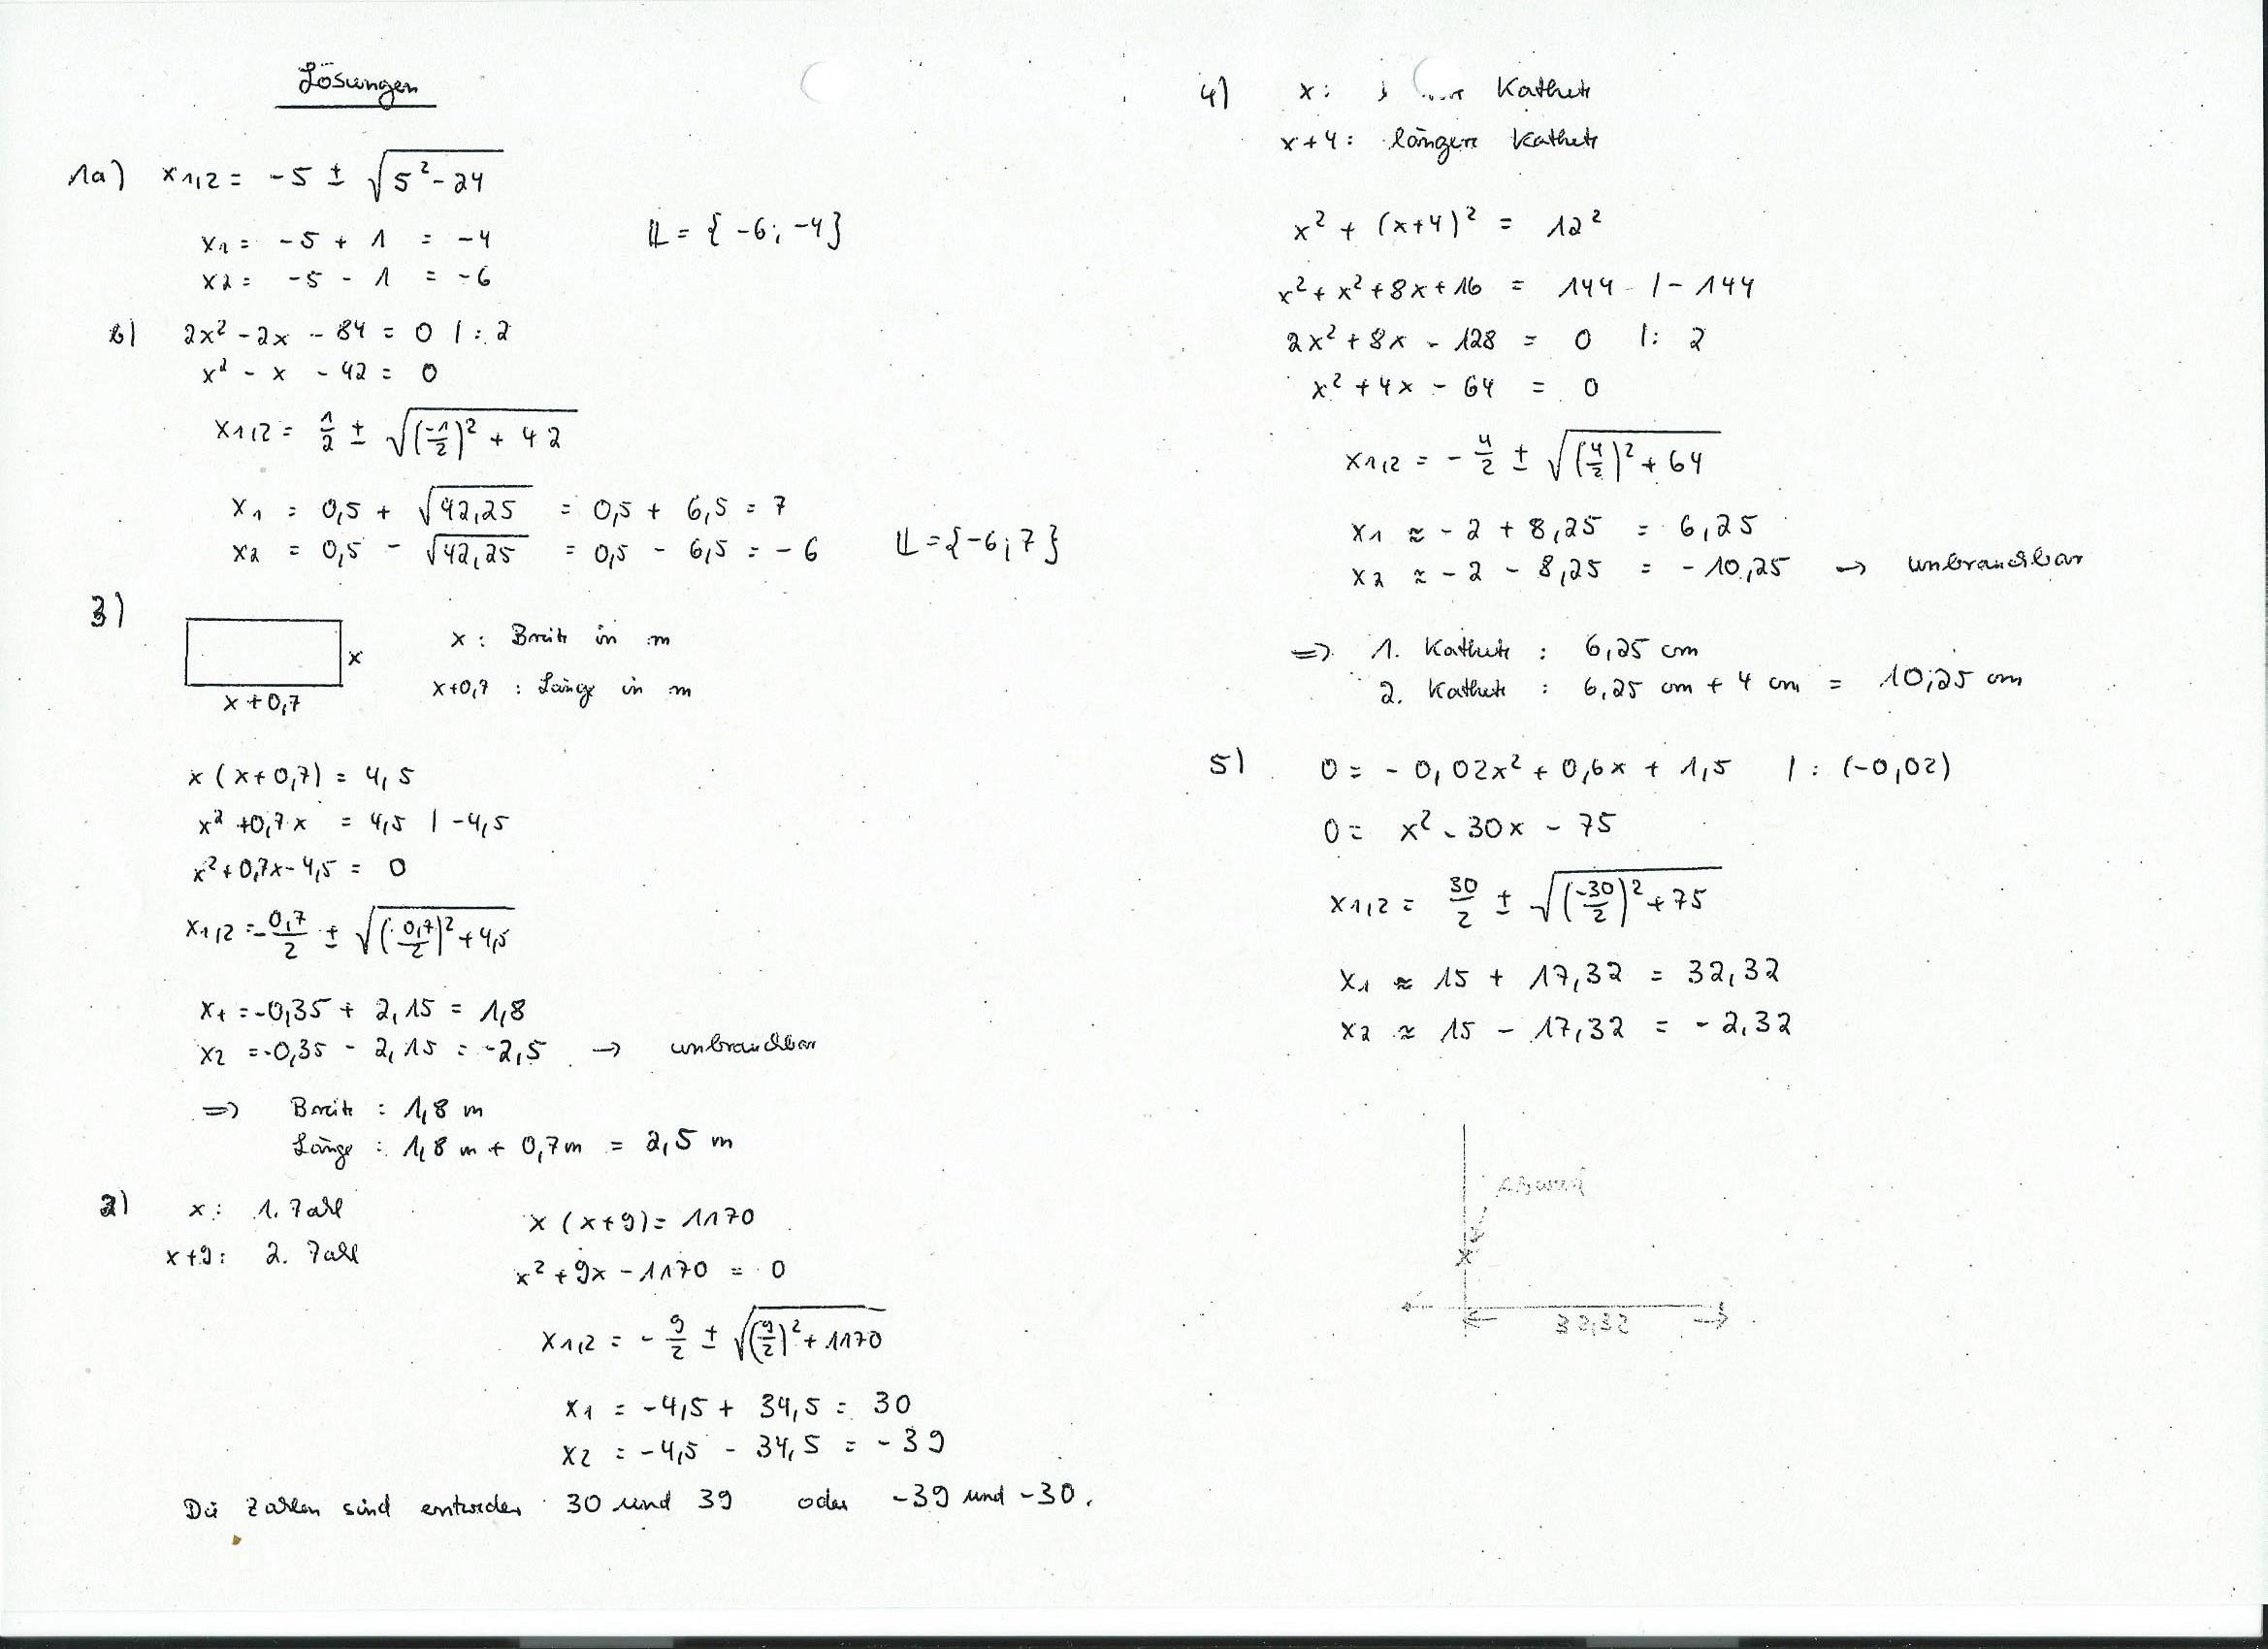 Lösungen
1a) x1,2 = -5 ± √(5² - 24)
x1 = -5 + 1 = -4
x2 = -5 - 1 = -6
𝕃 = { -6; -4 }
b) 2x² - 2x - 84 = 0 | : 2
x² - x - 42 = 0
x1,2 = 1/2 ± √((-1/2)² + 42)
x1 = 0,5 + √42,25 = 0,5 + 6,5 = 7
x2 = 0,5 - √42,25 = 0,5 - 6,5 = -6
𝕃 = {-6; 7}
3)
x
x + 0,7
x : Breite in m
x+0,7 : Länge in m
x (x + 0,7) = 4,5
x² + 0,7x = 4,5 | - 4,5
x² + 0,7x - 4,5 = 0
x1,2 = -0,7/2 ± √((0,7/2)² + 4,5)
x1 = -0,35 + 2,15 = 1,8
x2 = -0,35 - 2,15 = -2,5 → unbrauchbar
⇒ Breite : 1,8 m
Länge : 1,8 m + 0,7 m = 2,5 m
2) x : 1. Zahl
x+9 : 2. Zahl
x (x+9) = 1170
x² + 9x - 1170 = 0
x1,2 = -9/2 ± √((9/2)² + 1170)
x1 = -4,5 + 34,5 = 30
x2 = -4,5 - 34,5 = -39
Die Zahlen sind entweder 30 und 39 oder -39 und -30.
4) x : Kathete
x+4 : längere Kathete
x² + (x+4)² = 12²
x² + x² + 8x + 16 = 144 | - 144
2x² + 8x - 128 = 0 | : 2
x² + 4x - 64 = 0
x1,2 = -4/2 ± √((4/2)² + 64)
x1 ≈ -2 + 8,25 = 6,25
x2 ≈ -2 - 8,25 = -10,25 → unbrauchbar
⇒ 1. Kathete : 6,25 cm
2. Kathete : 6,25 cm + 4 cm = 10,25 cm
5) 0 = -0,02x² + 0,6x + 1,5 | : (-0,02)
0 = x² - 30x - 75
x1,2 = 30/2 ± √((-30/2)² + 75)
x1 ≈ 15 + 17,32 = 32,32
x2 ≈ 15 - 17,32 = -2,32
x
32,32